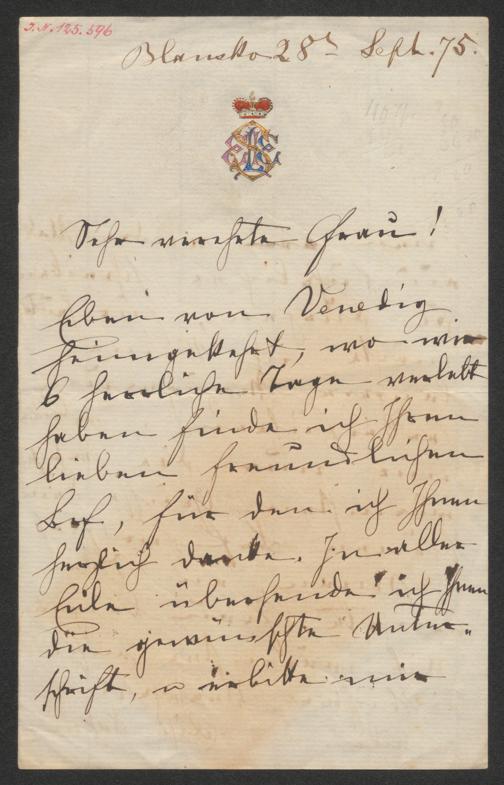 J.N. 125.596
Blansko 28t Sept. 75.
Sehr verehrte Frau!
Eben von Venedig
heimgekehrt, wo wir
6 herrliche Tage verlebt
haben finde ich Ihren
lieben freundlichen
Brf, für den ich Ihnen
herzlich danke. In aller
Eile übersende ich Ihnen
die gewünschte Unter-
schrift, u erbitte mir